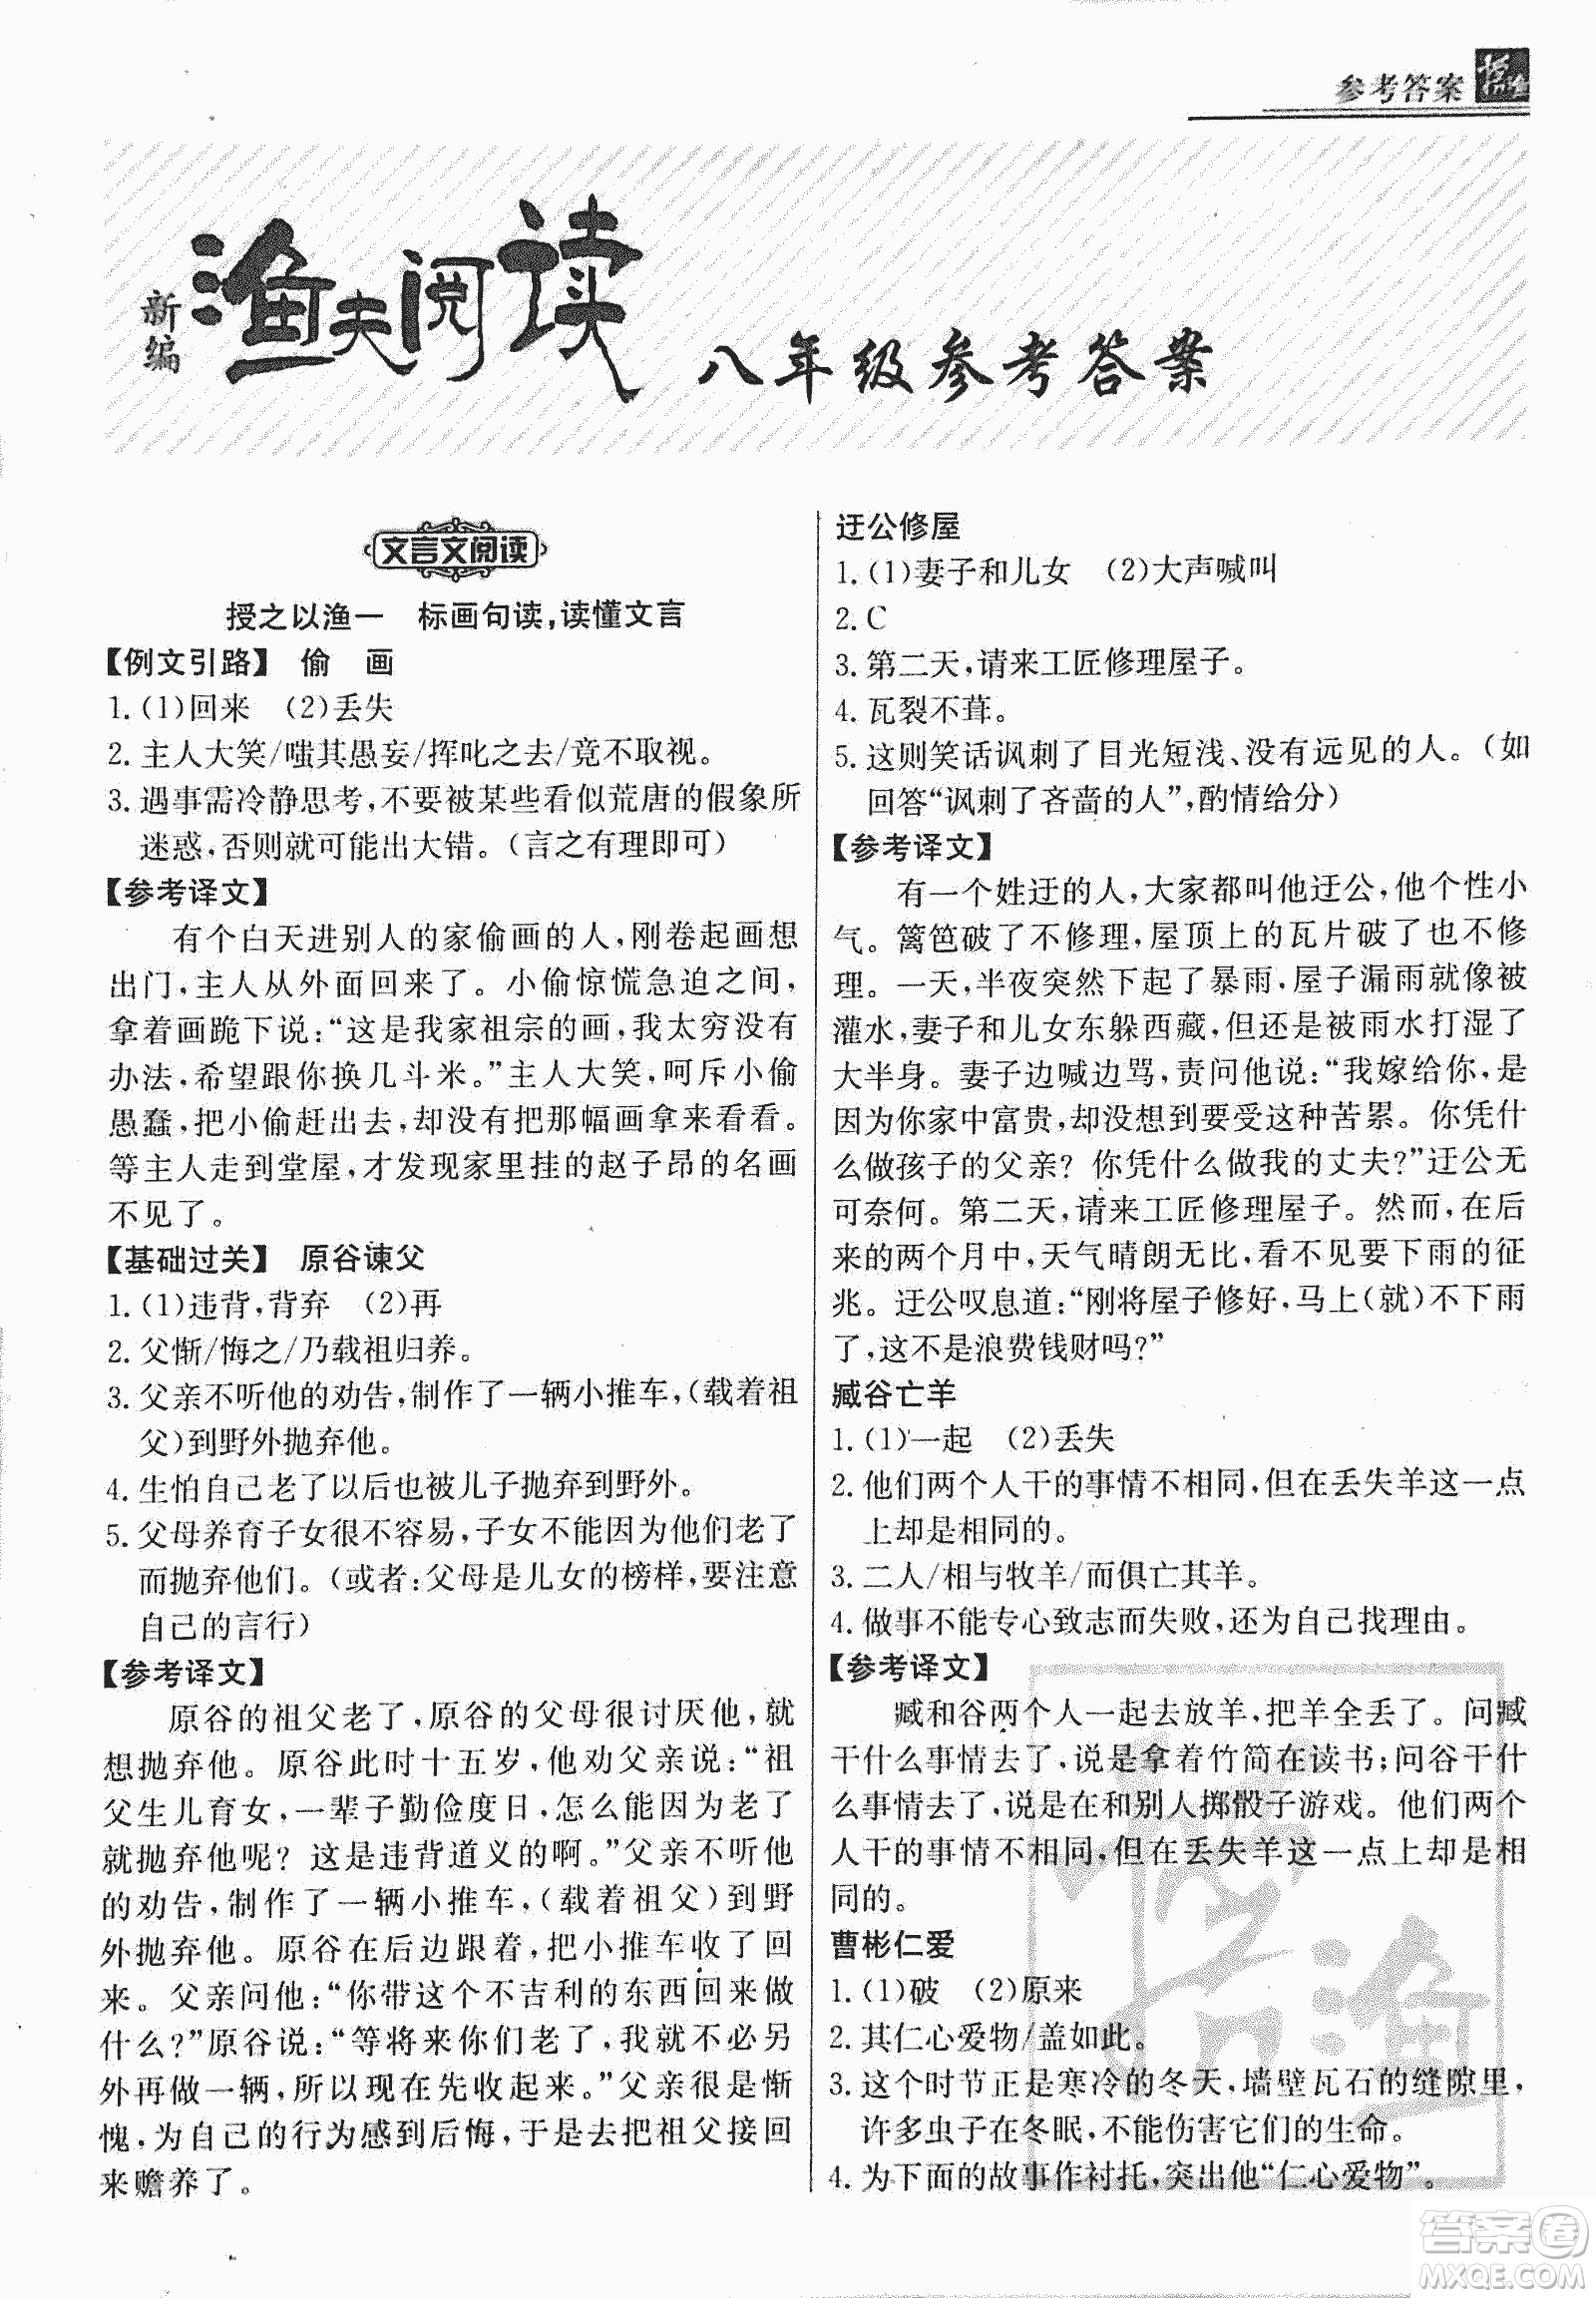 参考答案
新编
渔夫阅读
八年级参考答案
文言文阅读
授之以渔一 标画句读,读懂文言
【例文引路】 偷 画
1.(1)回来 (2)丢失
2. 主人大笑/嗤其愚妄/挥叱之去/竟不取视。
3. 遇事需冷静思考,不要被某些看似荒唐的假象所
迷惑,否则就可能出大错。(言之有理即可)
【参考译文】
有个白天进别人的家偷画的人,刚卷起画想
出门,主人从外面回来了。小偷惊慌急迫之间,
拿着画跪下说:“这是我家祖宗的画,我太穷没有
办法,希望跟你换几斗米。”主人大笑,呵斥小偷
愚蠢,把小偷赶出去,却没有把那幅画拿来看看。
等主人走到堂屋,才发现家里挂的赵子昂的名画
不见了。
【基础过关】 原谷谏父
1.(1)违背,背弃 (2)再
2. 父惭/悔之/乃载祖归养。
3. 父亲不听他的劝告,制作了一辆小推车,(载着祖
父)到野外抛弃他。
4. 生怕自己老了以后也被儿子抛弃到野外。
5. 父母养育子女很不容易,子女不能因为他们老了
而抛弃他们。(或者:父母是儿女的榜样,要注意
自己的言行)
【参考译文】
原谷的祖父老了,原谷的父母很讨厌他,就
想抛弃他。原谷此时十五岁,他劝父亲说:“祖
父生儿育女,一辈子勤俭度日,怎么能因为老了
就抛弃他呢? 这是违背道义的啊。”父亲不听他
的劝告,制作了一辆小推车,(载着祖父)到野
外抛弃他。原谷在后边跟着,把小推车收了回
来。父亲问他:“你带这个不吉利的东西回来做
什么?”原谷说:“等将来你们老了,我就不必另
外再做一辆,所以现在先收起来。”父亲很是惭
愧,为自己的行为感到后悔,于是去把祖父接回
来赡养了。
迂公修屋
1.(1)妻子和儿女 (2)大声喊叫
2. C
3. 第二天,请来工匠修理屋子。
4. 瓦裂不葺。
5. 这则笑话讽刺了目光短浅、没有远见的人。(如
回答“讽刺了吝啬的人”,酌情给分)
【参考译文】
有一个姓迂的人,大家都叫他迂公,他个性小
气。篱笆破了不修理,屋顶上的瓦片破了也不修
理。一天,半夜突然下起了暴雨,屋子漏雨就像被
灌水,妻子和儿女东躲西藏,但还是被雨水打湿了
大半身。妻子边喊边骂,责问他说:“我嫁给你,是
因为你家中富贵,却没想到要受这种苦累。你凭什
么做孩子的父亲? 你凭什么做我的丈夫?”迂公无
可奈何。第二天,请来工匠修理屋子。然而,在后
来的两个月中,天气晴朗无比,看不见要下雨的征
兆。迂公叹息道:“刚将屋子修好,马上(就)不下雨
了,这不是浪费钱财吗?”
臧谷亡羊
1.(1)一起 (2)丢失
2. 他们两个人干的事情不相同,但在丢失羊这一点
上却是相同的。
3. 二人/相与牧羊/而俱亡其羊。
4. 做事不能专心致志而失败,还为自己找理由。
【参考译文】
臧和谷两个人一起去放羊,把羊全丢了。问臧
干什么事情去了,说是拿着竹简在读书;问谷干什
么事情去了,说是在和别人掷骰子游戏。他们两个
人干的事情不相同,但在丢失羊这一点上却是相
同的。
曹彬仁爱
1.(1)破 (2)原来
2. 其仁心爱物/盖如此。
3. 这个时节正是寒冷的冬天,墙壁瓦石的缝隙里,
许多虫子在冬眠,不能伤害它们的生命。
4. 为下面的故事作衬托,突出他“仁心爱物”。
答案圈
MXQE.COM